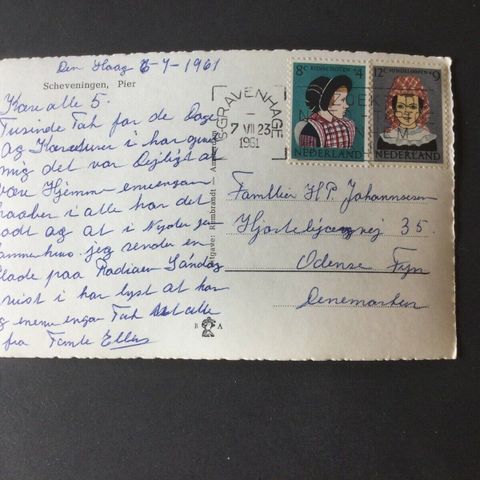 Den Haag 6-7-1961
Scheveningen, Pier
Kære alle 5.
Tusinde Tak for de Dage
og Kæreturer i har givet
mig det var Dejligt at
være Hjemme emengang
haaber i alle har det
godt og at i Nyder
jeg sender en
Plade paa Radioen Søndag
hvist i har lyst at hør
og enenu engang Tak alle
fra Tante Ellis
Uitgave: Rembrandt - Amsterdam
R A
8c KINDERZEGEL +4
NEDERLAND
12c +9
NEDERLAND
'S GRAVENHAGE
7 VII 23
1961
ZOEK
Familien H P. Johannsen
35.
Odense Fyn
Denemarken